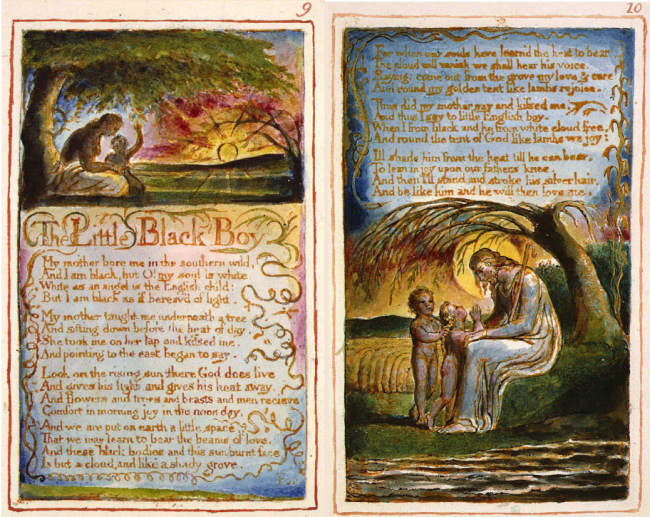 9
The Little Black Boy
My mother bore me in the southern wild,
And I am black, but O! my soul is white
White as an angel is the English child:
But I am black as if bereav'd of light.
My mother taught me underneath a tree
And sitting down before the heat of day.
She took me on her lap and kissed me,
And pointing to the east began to say.
Look on the rising sun: there God does live
And gives his light, and gives his heat away.
And flowers and trees and beasts and men recieve
Comfort in morning joy in the noon day.
And we are put on earth a little space
That we may learn to bear the beams of love.
And these black bodies and this sun-burnt face
Is but a cloud, and like a shady grove.
10
For when our souls have learn'd the heat to bear
The cloud will vanish we shall hear his voice.
Saying: come out from the grove my love & care
And round my golden tent like lambs rejoice.
Thus did my mother say and kissed me,
And thus I say to little English boy.
When I from black and he from white cloud free,
And round the tent of God like lambs we joy:
Ill shade him from the heat till he can bear,
To lean in joy upon our fathers knee.
And then I'll stand and stroke his silver hair,
And be like him and he will then love me.